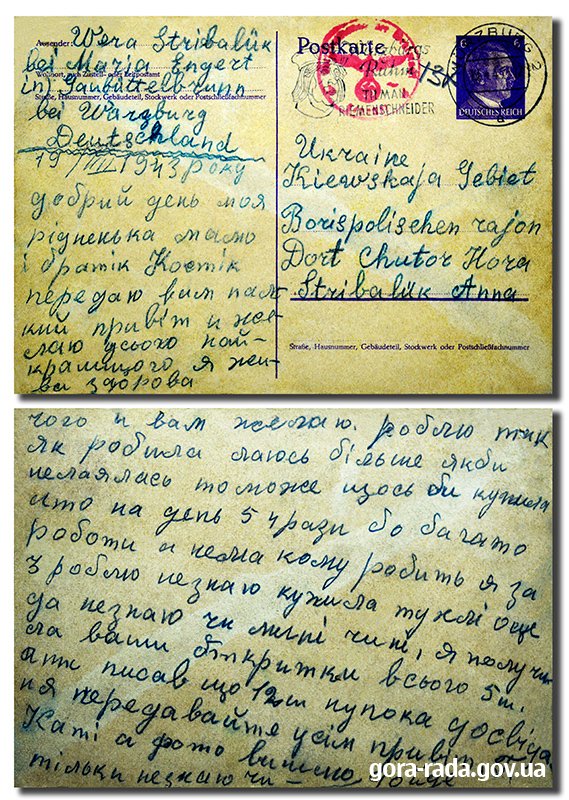 Absender:
Wera Stribalük
bei Maria Engert
Wohnort, auch Zustell- oder Leitpostamt
in) Gaubüttelbrunn
Straße, Hausnummer, Gebäudeteil, Stockwerk oder Postschließfachnummer
bei Würzburg
Deutschland
19/VIII 1943 року
добрий день моя
рідненька мамо
і братік Костік
передаю вам пал
кий привіт и же-
лаю усього най-
кращчого я жи-
ва здорова
Postkarte
TILMAN
RIEMENSCHNEIDER
DEUTSCHES REICH
Ukraine
Kiewskaja Gebiet
Borispolischen rajon
Dort chutor Hora
Stribalük Anna
Straße, Hausnummer, Gebäudeteil, Stockwerk oder Postschließfachnummer
чого и вам желаю. роблю так
як робила лаюсь більше якби
нелаялась то може щось би
що на день 5 рази бо багато
роботи а нема кому робить я за
з роблю незнаю тужлі още
да незнаю чи мині чи ні, я получи
ла ваши открітки всього 5 ш.
писав що 12 ш досвіда
ня передавайте усім привіт
Каті а фото вишлю
тільки незнаю чи
gora-rada.gov.ua